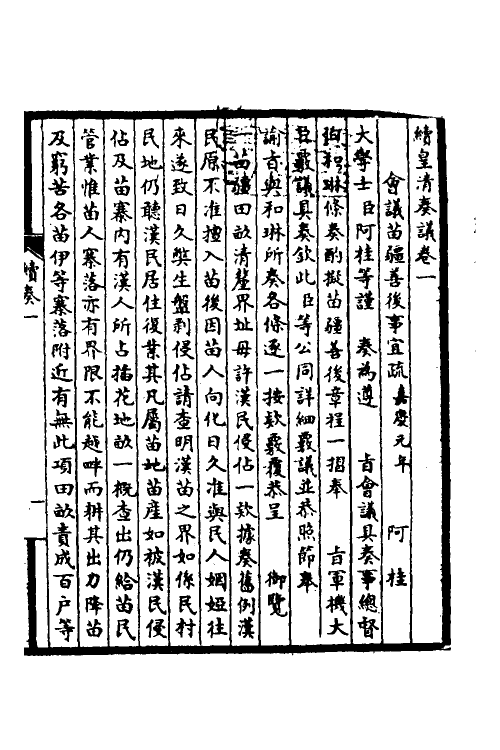 續皇清奏議卷一
會議苗疆善後事宜疏 嘉慶元年 阿桂
大學士臣阿桂等謹 奏為遵 旨會議具奏事總督
和琳條奏酌擬苗疆善後章程一摺奉 旨軍機大
臣覈議具奏欽此臣等公同詳細覈議並恭照節奉
諭旨與和琳所奏各條逐一按欵覈覆恭呈 御覽
一苗疆田畝清釐界址毋許漢民侵佔一欵據奏舊例漢
民原不准擅入苗後因苗人向化日久准與民人姻婭往
來遂致日久獘生盤剥侵佔請查明漢苗之界如係民村
民地仍聽漢民居住復業其凡屬苗地苗產如被漢民侵
佔及苗寨內有漢人所占插花地畝一概查出仍給苗民
管業惟苗人寨落亦有界限不能越畔而耕其出力降苗
及窮苦各苗伊等寨落附近有無此項田畝責成百户等
續奏一
一